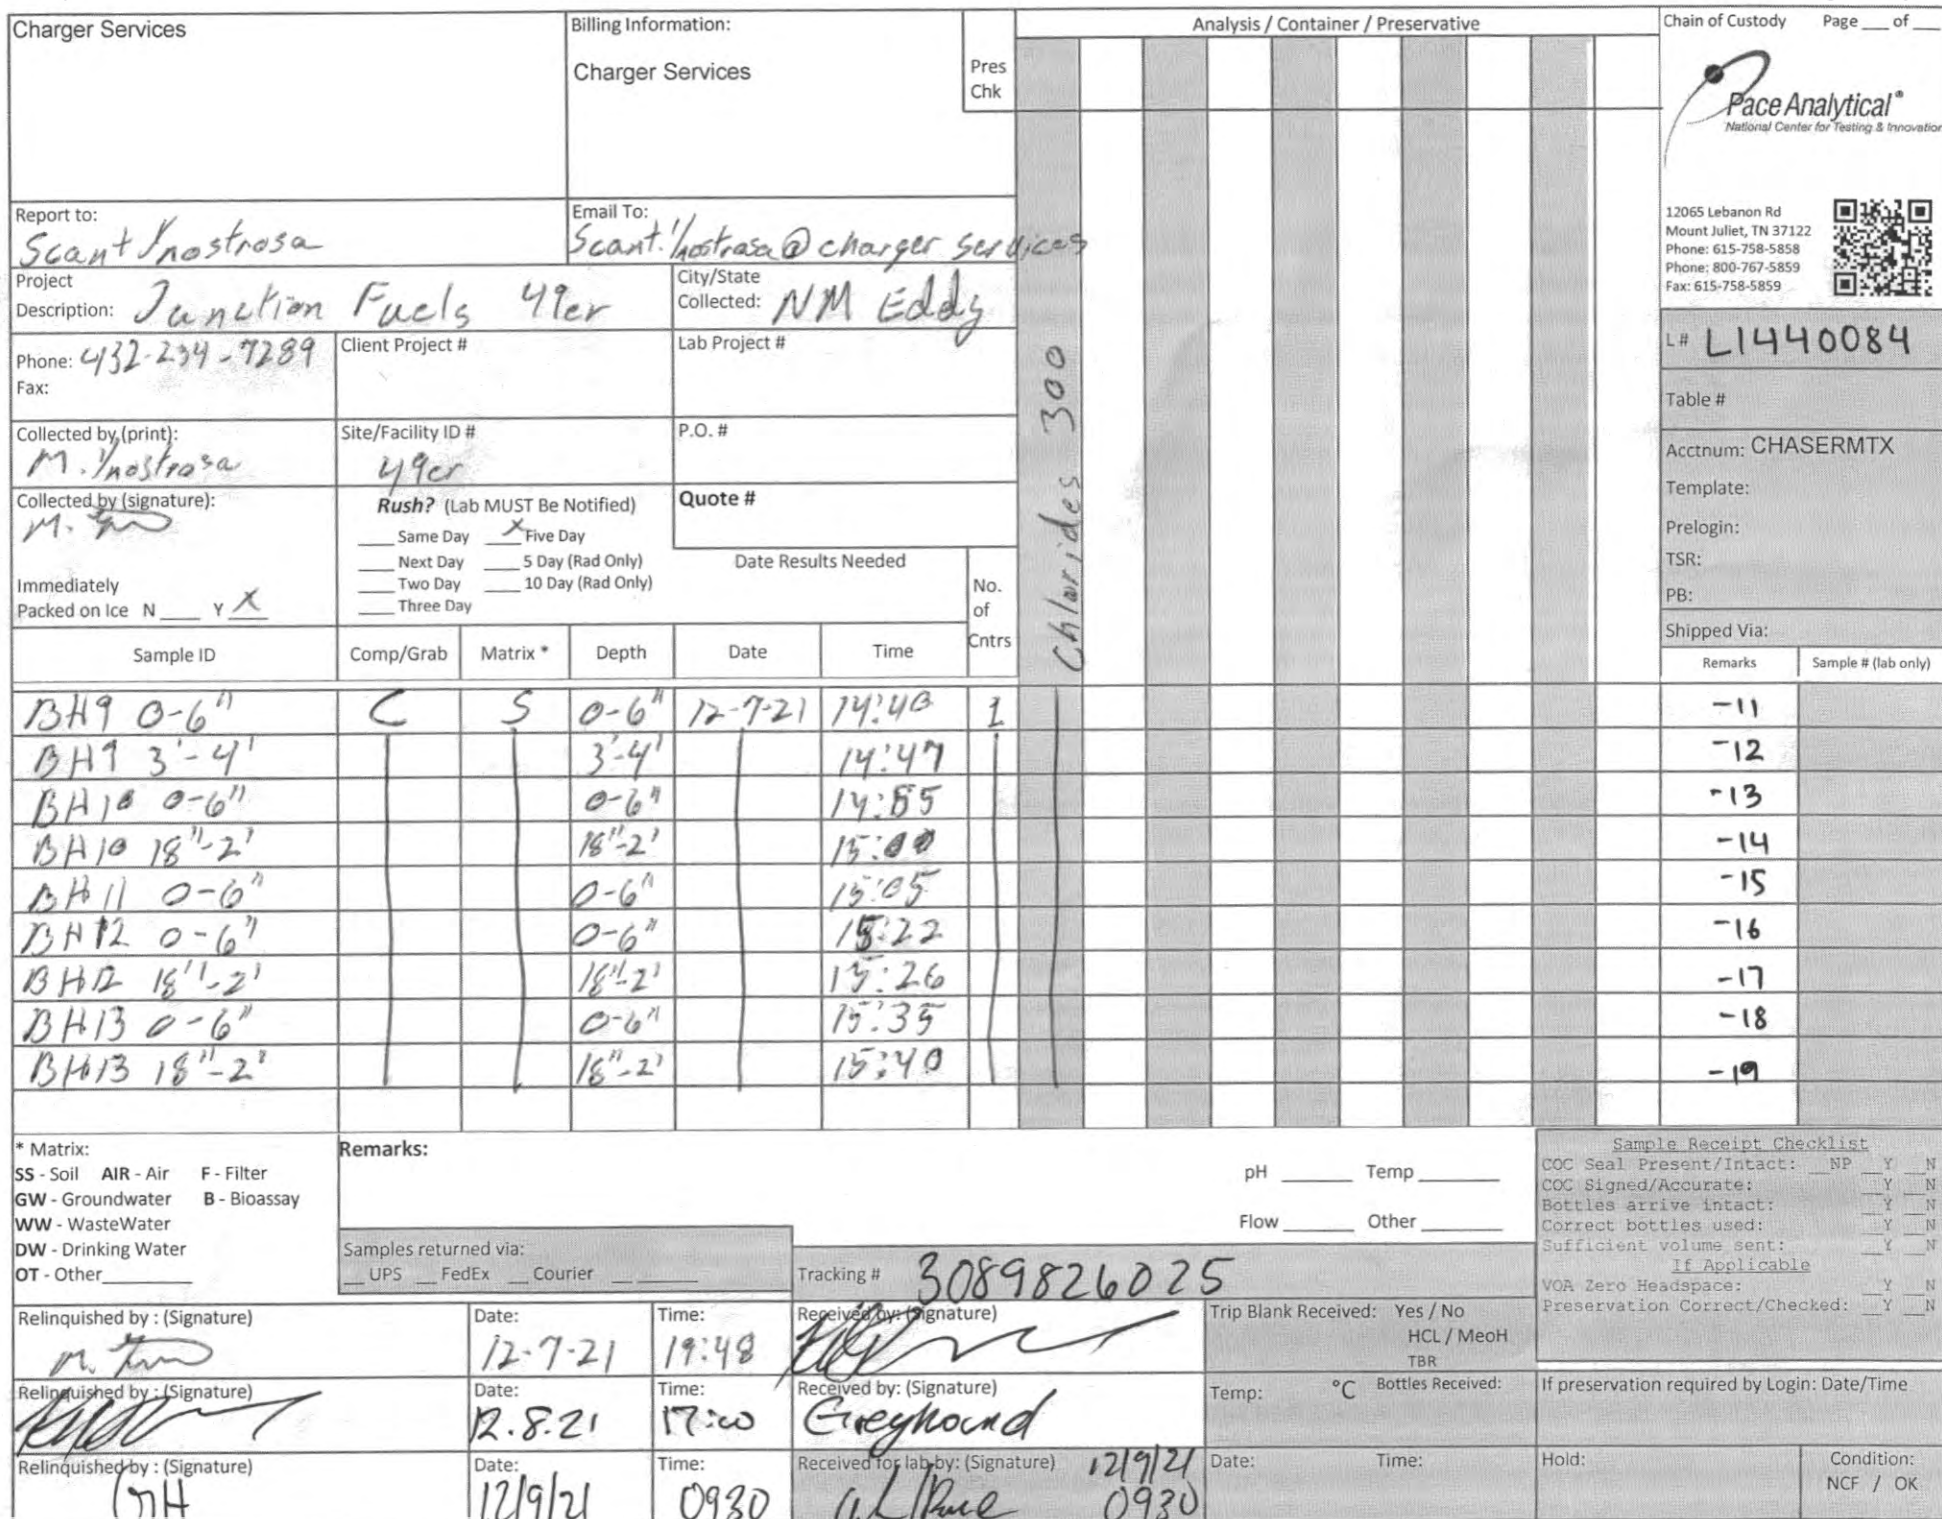 Charger Services
Billing Information:
Charger Services
Pres
Chk
Analysis / Container / Preservative
Chain of Custody Page ___ of ___
Pace Analytical®
National Center for Testing & Innovation
12065 Lebanon Rd
Mount Juliet, TN 37122
Phone: 615-758-5858
Phone: 800-767-5859
Fax: 615-758-5859
Report to:
Email To:
@charger services
Project
Description: Junction Fuels 49er
City/State
Collected: NM Eddy
Phone: 432-234-7289
Fax:
Client Project #
Lab Project #
L# L1440084
Table #
Collected by (print):
M. Ynostrosa
Site/Facility ID #
49er
P.O. #
Acctnum: CHASERMTX
Template:
Prelogin:
TSR:
PB:
Collected by (signature):
Rush? (Lab MUST Be Notified)
___ Same Day _X_ Five Day
___ Next Day ___ 5 Day (Rad Only)
___ Two Day ___ 10 Day (Rad Only)
___ Three Day
Quote #
Date Results Needed
Immediately
Packed on Ice N ___ Y _X_
No.
of
Cntrs
Chlorides 300
Shipped Via:
Sample ID Comp/Grab Matrix * Depth Date Time Remarks Sample # (lab only)
BH9 0-6" C S 0-6" 12-7-21 14:40 1 -11
BH9 3'-4' 3'-4' 14:47 -12
BH10 0-6" 0-6" 14:55 -13
BH10 18"-2' 18"-2' 15:00 -14
BH11 0-6" 0-6" 15:05 -15
BH12 0-6" 0-6" 15:22 -16
BH12 18"-2' 18"-2' 15:26 -17
BH13 0-6" 0-6" 15:35 -18
BH13 18"-2' 18"-2' 15:40 -19
* Matrix:
SS - Soil AIR - Air F - Filter
GW - Groundwater B - Bioassay
WW - WasteWater
DW - Drinking Water
OT - Other___
Remarks:
pH ___ Temp ___
Flow ___ Other ___
Samples returned via:
__ UPS __ FedEx __ Courier __ ___
Tracking # 3089826025
Sample Receipt Checklist
COC Seal Present/Intact: __NP __Y __N
COC Signed/Accurate: __Y __N
Bottles arrive intact: __Y __N
Correct bottles used: __Y __N
Sufficient volume sent: __Y __N
If Applicable
VOA Zero Headspace: __Y __N
Preservation Correct/Checked: __Y __N
Relinquished by : (Signature)
Date: 12-7-21
Time: 19:48
Received by: (Signature)
Trip Blank Received: Yes / No
HCL / MeoH
TBR
Relinquished by : (Signature)
Date: 12.8.21
Time: 17:00
Received by: (Signature)
Greyhound
Temp: °C Bottles Received:
If preservation required by Login: Date/Time
Relinquished by : (Signature)
GH
Date: 12/9/21
Time: 0930
Received for lab by: (Signature)
12/9/21
0930
Date: Time:
Hold:
Condition:
NCF / OK